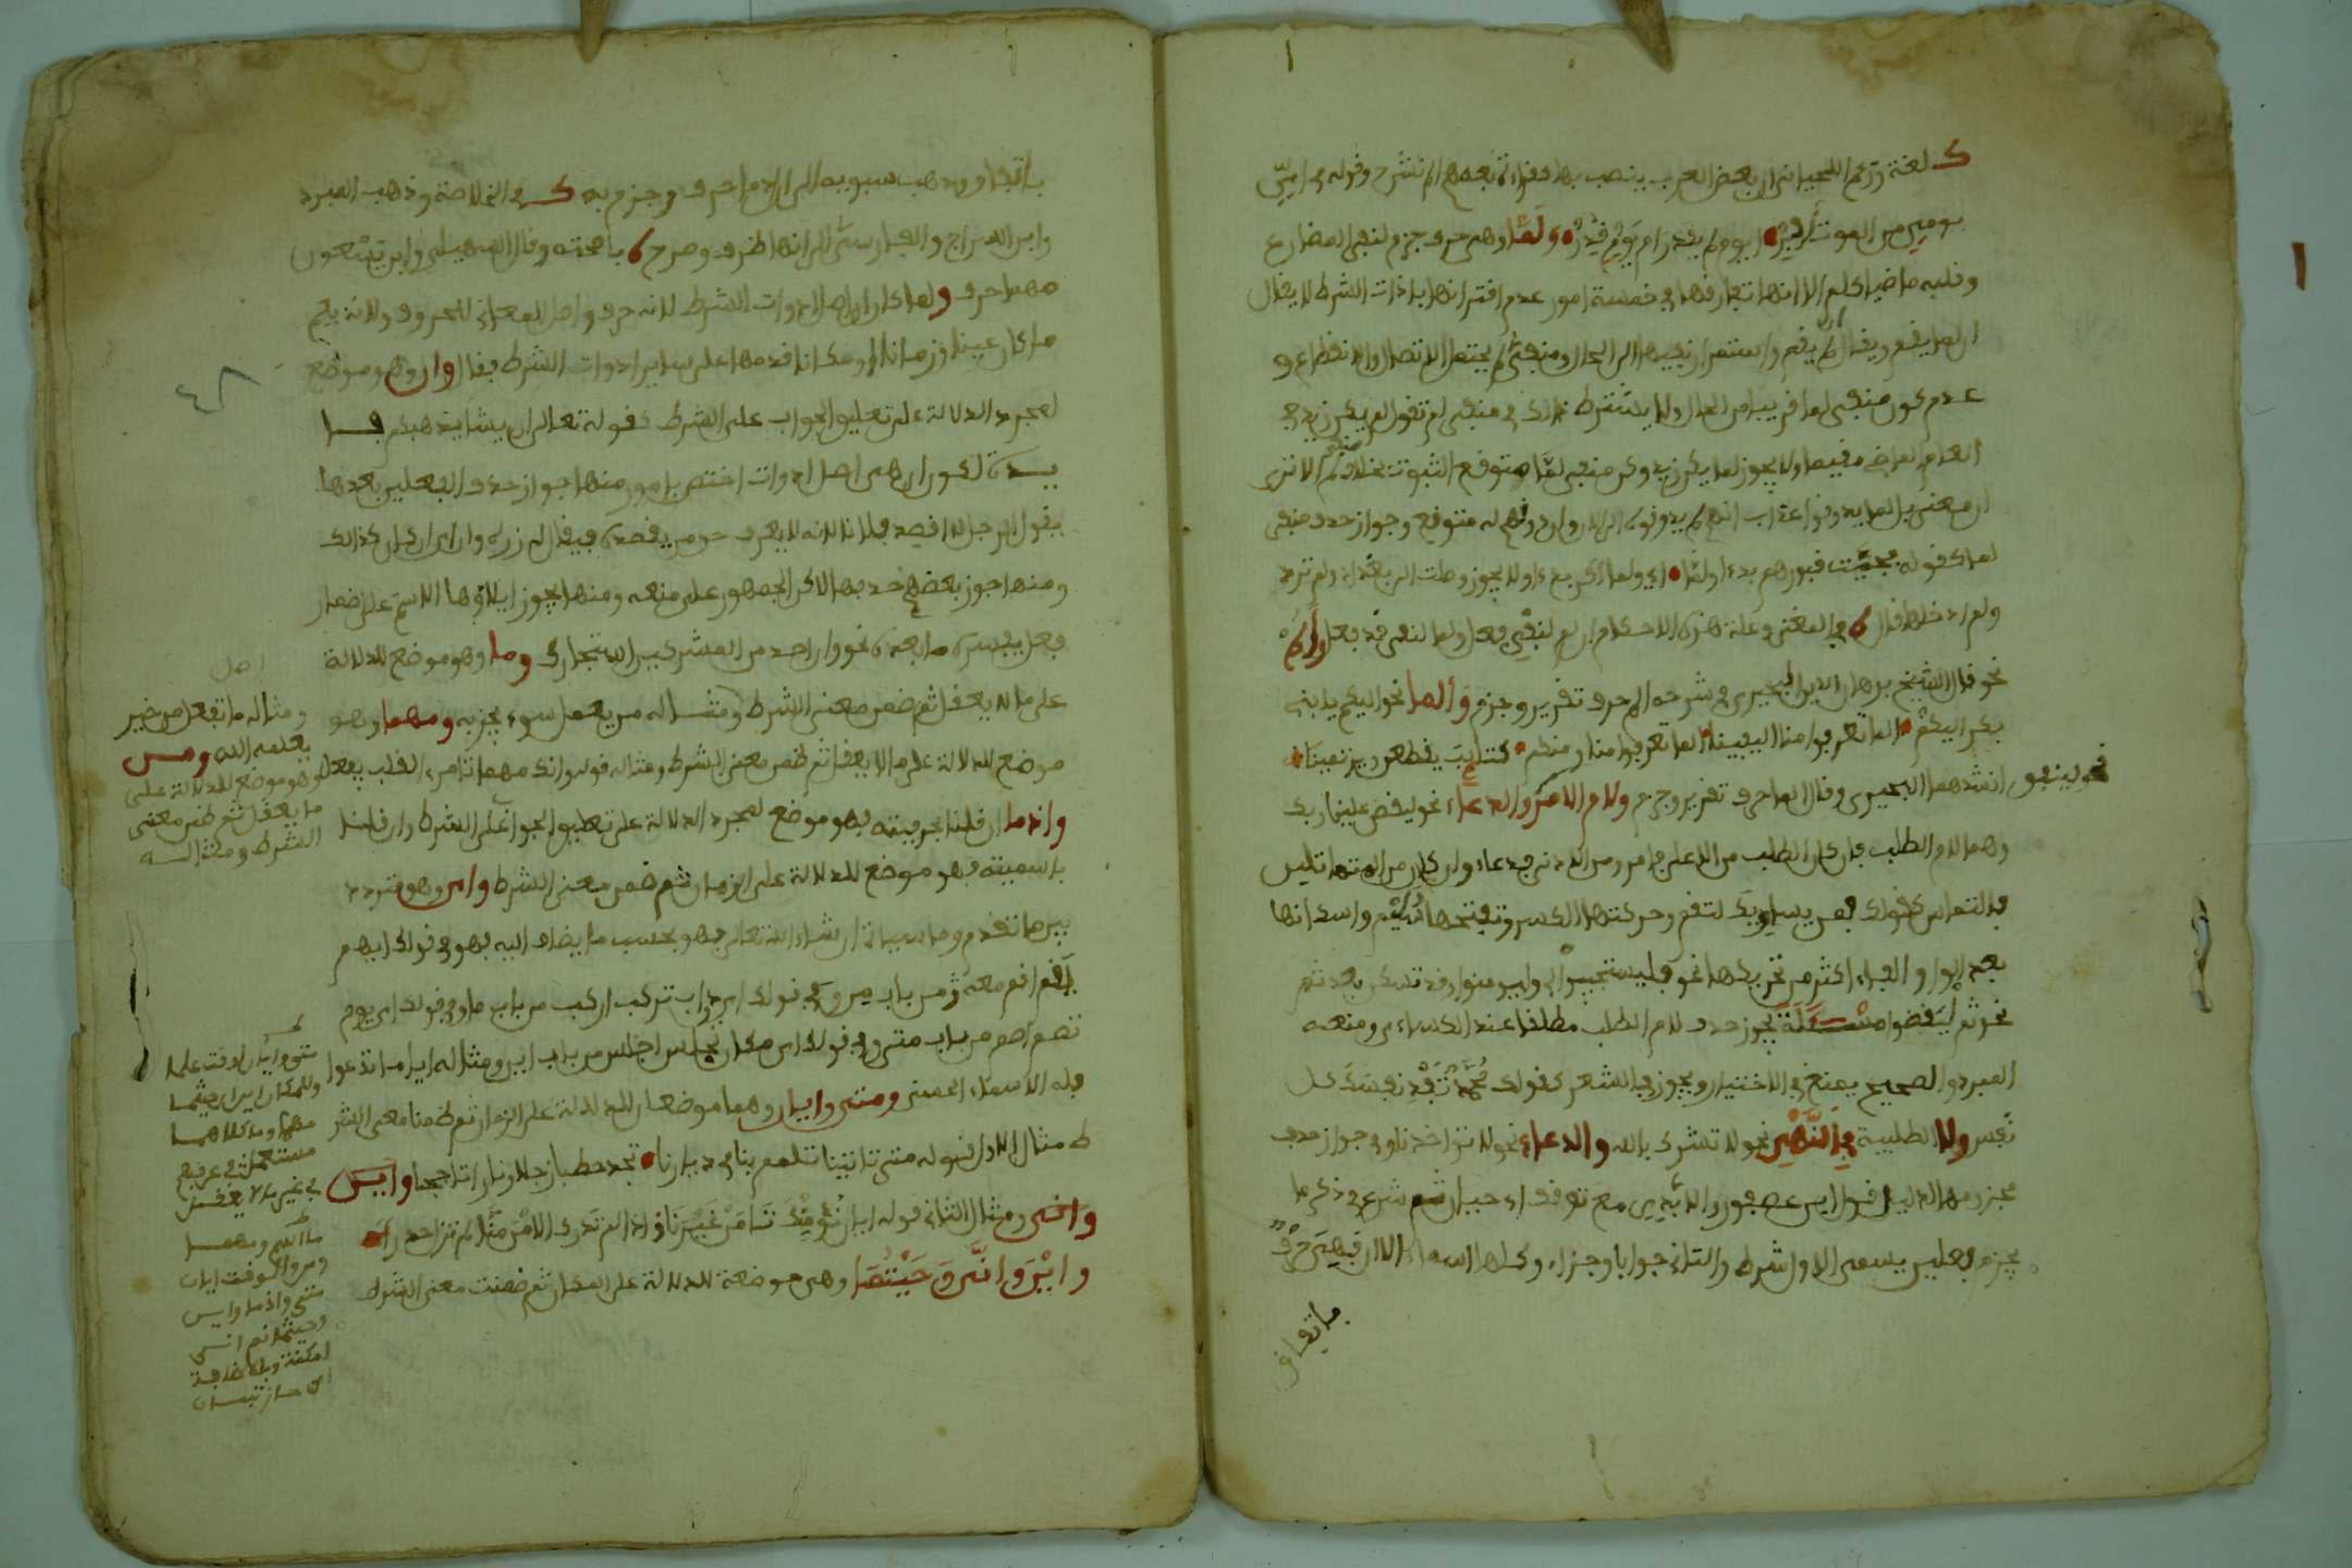 ك لغة وزعم اللحياني ان بعض العرب ينصب بها كقراءة بعضهم الم نشرح وقوله في اي
يومي من الموت افر ايوم لم يقدر ام يوم قدر ولما وهي حرف جزم لنفي المضارع
وقلبه ماضيا كلم الا انها تفارقها في خمسة امور عدم اقترانها باداة الشرط لا يقال
ان لما يقم ويقال ان لم يقم واستمرار نفيها الى الحال ومنفي لم يحتمل الاتصال والانقطاع و
عدم كون منفي لما قريبا من الحال ولا يشترط ذلك في منفي لم تقول لم يكن زيد في
العام الماضي مقيما ولا يجوز لما يكن زيد وكون منفي لما متوقع الثبوت بخلاف منفي لم الا ترى
ان معنى بل لما يذوقوا عذاب انهم لم يذوقوه الى الان وان ذوقهم له متوقع وجواز حذف منفي
لما كقوله فجيت قبورهم بدءا ولما اي ولما اكن بدءا ولا يجوز وصلت الى بغداد ولم تريد
ولم ادخلها قال في المغني وعلة هذه الاحكام ان لم لنفي فعل ولما لنفي قد فعل والم
نحو قال الشيخ برهان الدين البحيري في شرحه الم حرف تقرير وجزم وألما نحو اليكم يا بني
بكر اليكم الما تعرفوا منا اليقينا الما تعرفوا منا ومنكم كتايب يطعن ويرتمينا
انشدهما البحيري وقال الما حرف تقرير وجزم ولام الامر والدعاء نحو ليقض علينا ربك
نحو لينفق
وهما لام الطلب فان كان الطلب من الاعلى فامر ومن الادنى فدعاء وان كان من
فالتماس كقولك لمن يساويك لتقم وحركتها الكسر وتفتحها سليم واسكانها
بعد الواو والفاء اكثر من تحريكها نحو فليستجيبوا لي وليومنوا وقد تسكن بعد ثم
نحو ثم ليقضوا مسئلة يجوز حذف لام الطلب مطلقا عند الكساءي ومنعه
المبرد والصحيح يمنع في الاختيار ويجوز في الشعر كقولك محمد تفد نفسك كل
نفس ولا الطلبية في النهي نحو لا تشرك بالله والدعاء نحو لا تؤاخذنا وفي جواز حذف
مجزومها لدليل قولا ابن عصفور والابدي مع توقف ابي حيان ثم شرع في ذكر ما
يجزم فعلين يسمى الاول شرطا والثاني جوابا وجزاء وكلها اسماء الا ان فهي حرف
باتفاق
باتفاق وذهب سيبويه الى ان اذما حرف وجزم به ك في الخلاصة وذهب المبرد
وابن السراج والفارسي الى انها ظرف وصرح م باصحته وقال السهيلي وابن يسعون
مهما حرف ولما كان ان اصل ادوات الشرط لانه حرف واصل المعاني للحروف ولانه يعم
ما كان عينا او زمانا او مكانا قدمها على ساير ادوات الشرط فقال وان وهو موضع
لمجرد الدلالة على تعليق الجواب على الشرط كقوله تعالى ان يشا يذهبكم فا
يدة لكون ان هي اصل ادوات اختص بامور منها جواز حذف الفعلين بعدها
يقول الرجل لا اقصد فلانا لانه لا يعرف حق من يقصده فيقال له زره وان اي وان كان كذلك
ومنها جوز بعضهم حذفها لاكن الجمهور على منعه ومنها يجوز ايلاؤها الاسم على اضمار
فعل يفسره ما بعده نحو وان احد من المشركين استجارك وما وهو موضع للدلالة
على ما لا يعقل ثم ضمن معنى الشرط ومثاله من يعمل سوءا يجز به ومهما وهو
موضع للدلالة على ما لا يعقل ثم ضمن معنى الشرط ومثاله قوله وانك مهما تامري القلب يفعل
واذما ان قلنا بحرفيته فهو موضع لمجرد الدلالة على تعليق الجواب على الشرط وان قلنا
باسميته فهو موضع للدلالة على الزمان ثم ضمن معنى الشرط واي وهو متردد
بين ما تقدم وما سيأتي ان شاء الله تعالى فهو بحسب ما يضاف اليه فهو في قولك ايهم
يقم اقم معه من باب من وفي قولك اي دواب تركب اركب من باب ما وفي قولك اي يوم
تصم اصم من باب متى وفي قولك اي مكان تجلس اجلس من باب اين ومثاله ايا ما تدعوا
فله الاسماء الحسنى ومتى وايان وهما موضعان للدلالة على الزمان ثم ضمنا معنى الشر
ط مثال الاول قوله متى تاتنا تلمم بنا في ديارنا تجد حطبا جزلا ونارا تاججا واين
وانى ومثال الثاني قوله ايان نؤمنك تامن غيرنا واذا لم تدرك الامن منا لم تزل حذرا
واين وانى وحيثما وهي موضعة للدلالة على المكان ثم ضمنت معنى الشرط
اصل
ومثاله ما تفعل من خير
يعلمه الله ومن
وهو موضع للدلالة على
ما يعقل ثم ضمن معنى
الشرط ومثاله
متى وايان لوقت علما
وللمكان اين اين حيثما
مهما وما كلاهما
مستعمل في عرفهم
في غير ما لا يعقل